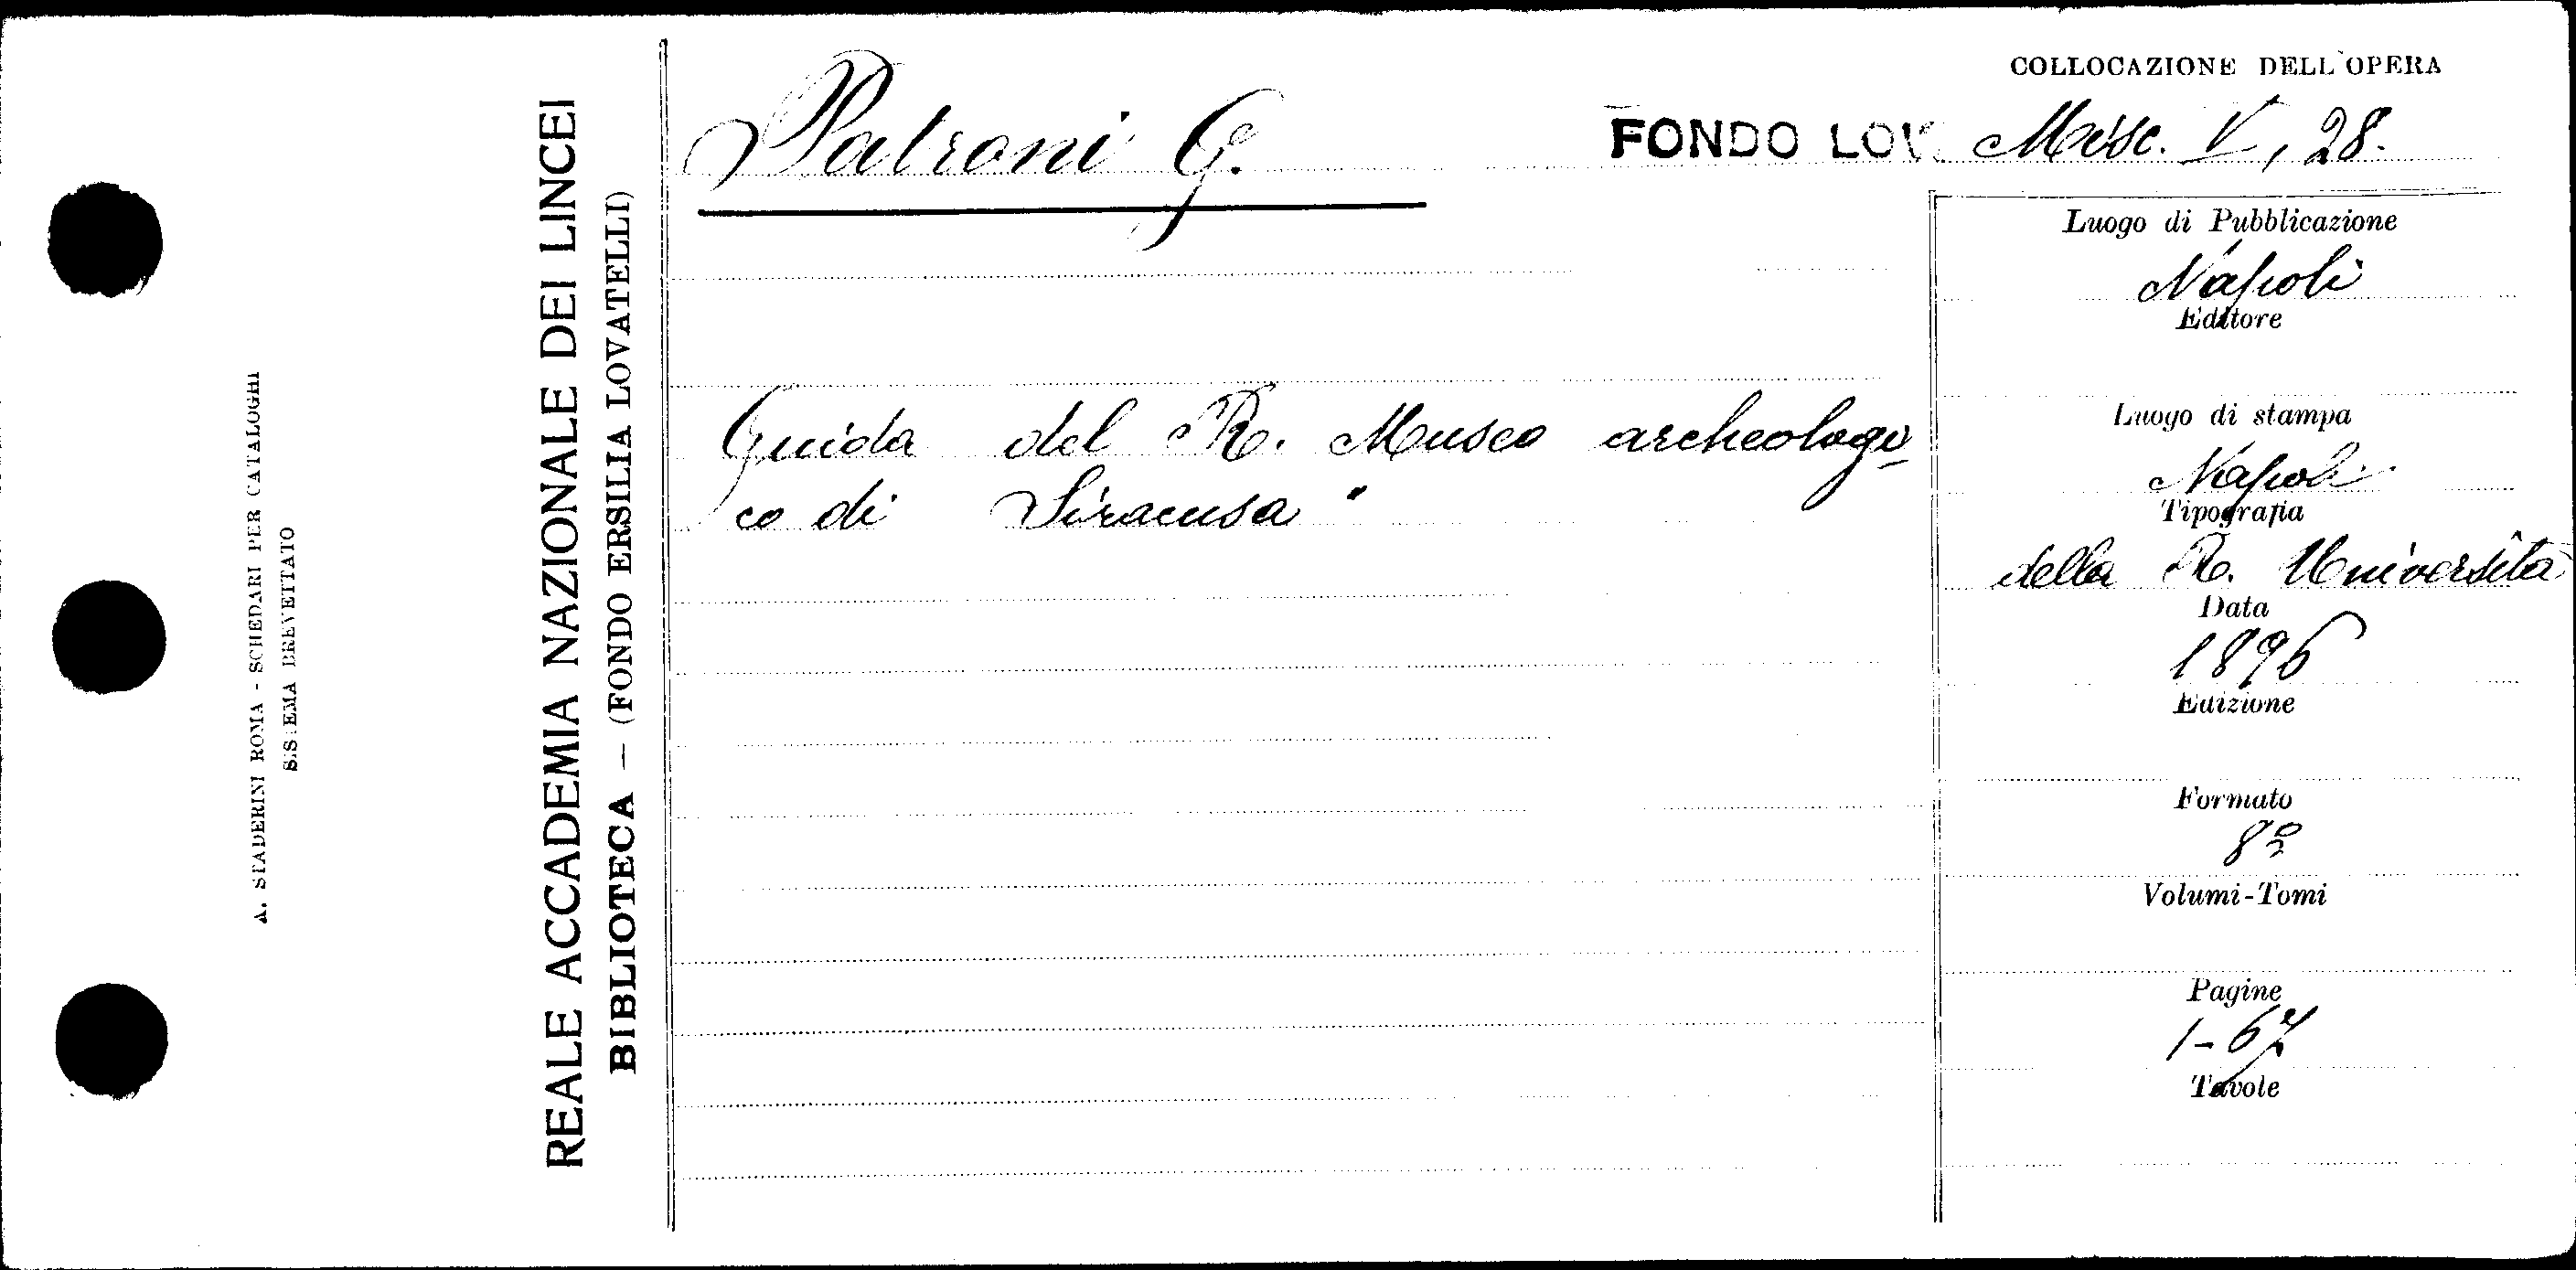 A. STADERINI ROMA - SCHEDARI PER CATALOGHI
SISTEMA BREVETTATO
REALE ACCADEMIA NAZIONALE DEI LINCEI
BIBLIOTECA — (FONDO ERSILIA LOVATELLI)
COLLOCAZIONE DELL'OPERA
Patroni G.
FONDO LOV. Misc. V, 28.
Guida del R. Museo archeologi
co di Siracusa"
Luogo di Pubblicazione
Napoli
Editore
Luogo di stampa
Napoli
Tipografia
della R. Università
Data
1896
Edizione
Formato
8º
Volumi-Tomi
Pagine
1-67
Tavole